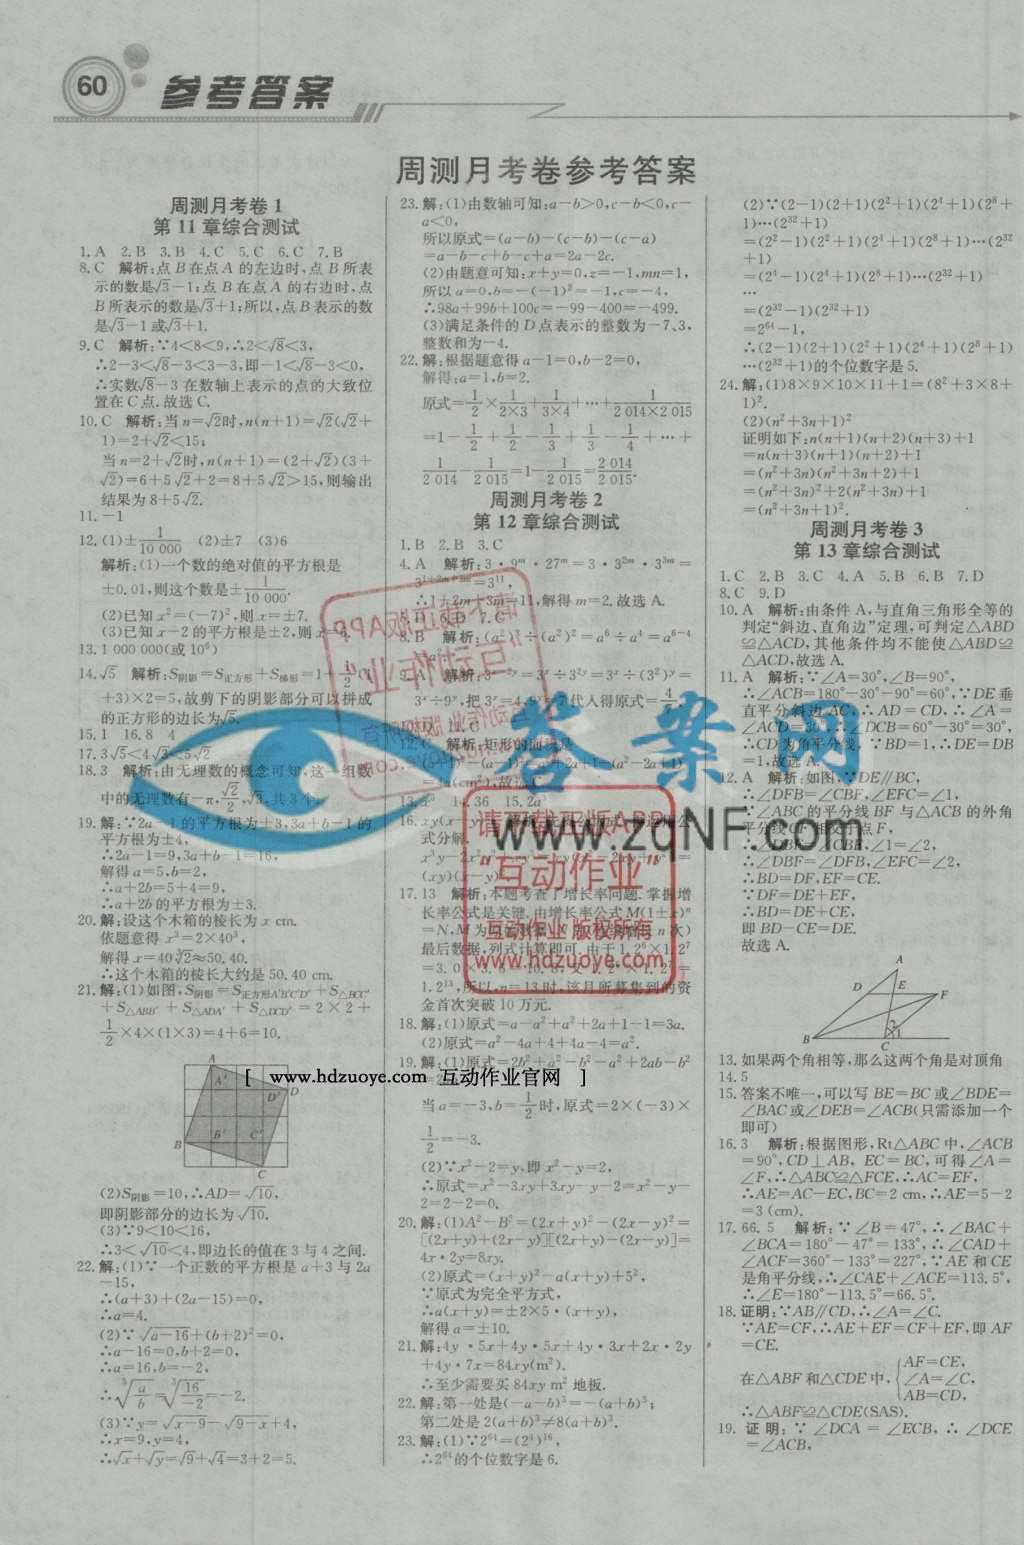 60
参考答案
周测月考卷参考答案
周测月考卷 1
第 11 章综合测试
1. A 2. B 3. B 4. C 5. C 6. C 7. B
8. C 解析:点 B 在点 A 的左边时,点 B 所表
示的数是√3－1;点 B 在点 A 的右边时,点
B 所表示的数是√3＋1;所以,点 B 表示的数
是√3－1 或√3＋1.
9. C 解析:∵4＜8＜9,∴2＜√8＜3,
∴2－3＜√8－3＜3－3,即－1＜√8－3＜0,
∴实数√8－3 在数轴上表示的点的大致位
置在 C 点.故选 C.
10. C 解析:当 n＝√2时,n(n＋1)＝√2(√2＋
1)＝2＋√2＜15;
当 n＝2＋√2时,n(n＋1)＝(2＋√2)(3＋
√2)＝6＋5√2＋2＝8＋5√2＞15,则输出
结果为 8＋5√2.
11. －1
12. (1)±1/10 000 (2)±7 (3)6
解析:(1)一个数的绝对值的平方根是
±0.01,则这个数是±1/10 000.
(2)已知 x²＝(－7)²,则 x＝±7.
(3)已知 x－2 的平方根是±2,则 x＝
13. 1 000 000(或 10⁶)
14. √5 解析:S阴影＝S正方形＋S梯形＝1
＋3)×2＝5,故剪下的阴影部分可以拼成
的正方形的边长为√5.
15. 1 16. 8 4
17. 3√5＜4√3＜5√2
18. 3 解析:由无理数的概念可知,这一组数
中的无理数有－π,√2/2,√3,共 3 个.
19. 解:∵2a－1 的平方根为±3,3a＋b－1 的
平方根为±4,
∴2a－1＝9,3a＋b－1＝16,
解得 a＝5,b＝2,
∴a＋2b＝5＋4＝9,
∴a＋2b 的平方根为±3.
20. 解:设这个木箱的棱长为 x cm.
依题意得 x³＝2×40³,
解得 x＝40∛2≈50.40.
∴这个木箱的棱长大约是 50.40 cm.
21. 解:(1)如图,S阴影＝S正方形A′B′C′D′＋S△BCC′
＋S△ABB′＋S△ADA′＋S△DCD′＝2×2＋
1/2×4×(1×3)＝4＋6＝10.
A
A′
D′
D
B
B′
C′
C
(2)S阴影＝10,∴AD＝√10,
即阴影部分的边长为√10.
(3)∵9＜10＜16,
∴3＜√10＜4,即边长的值在 3 与 4 之间.
22. 解:(1)∵一个正数的平方根是 a＋3 与 2a
－15,
∴(a＋3)＋(2a－15)＝0,
∴a＝4.
(2)∵√(a－16)＋(b＋2)²＝0,
∴a－16＝0,b＋2＝0,
∴a＝16,b＝－2,
∴∛(a/b)＝∛(16/－2)＝－2.
(3)∵y＝√(x－9)－√(9－x)＋4,
∴x＝9,y＝4,
∴√x＋√y＝√9＋√4＝3＋2＝5.
23. 解:(1)由数轴可知:a－b＞0,c－b＜0,c－
a＜0,
所以原式＝(a－b)－(c－b)－(c－a)
＝a－b－c＋b－c＋a＝2a－2c.
(2)由题意可知:x＋y＝0,z＝－1,mn＝1,
所以 a＝0,b＝－(－1)²＝－1,c＝－4,
∴98a＋99b＋100c＝－99－400＝－499.
(3)满足条件的 D 点表示的整数为－7、3,
整数和为－4.
22. 解:根据题意得 a－1＝0,b－2＝0,
解得:a＝1,b＝2.
原式＝1/2×1/(2×3)＋1/(3×4)＋…＋1/(2 014×2 015)
＝1－1/2＋1/2－1/3＋1/3－1/4＋…＋
1/2 014－1/2 015＝1－1/2 015＝2 014/2 015.
周测月考卷 2
第 12 章综合测试
1. B 2. B 3. C
4. A 解析:3·9ᵐ·27ᵐ＝3·3²ᵐ·3³ᵐ＝
3¹⁺²ᵐ⁺³ᵐ＝3¹¹,
∴1＋2m＋3m＝11,解得 m＝2.故选 A.
5. D 6. D 7. C
8. B
9.
12. C 解析:矩形的面积是
16. xy(x－y)²
17. 13 解析:本题考查了增长率问题.掌握增
长率公式是关键.由增长率公式 M(1±x)ⁿ
最后数据,列式计算即可.由于 1.2⁶×1.2⁷
1.2¹³,所以,n＝13 时,该月所募集到的资
金首次突破 10 万元.
18. 解:(1)原式＝a－a²＋a²＋2a＋1－1＝3a.
(2)原式＝a²－4a＋4＋4a－4＝a².
19. 解:(1)原式＝2b²＋a²－b²－a²＋2ab－b²
＝2
当 a＝－3,b＝1/2时,原式＝2×(－3)×
1/2＝－3.
(2)∵x²－2＝y,即 x²－y＝2,
∴原式＝x²－3xy＋3xy－y－2＝x²－y－
2＝2－2＝0.
20. 解:(1)A²－B²＝(2x＋y)²－(2x－y)²＝
[(2x＋y)＋(2x－y)][(2x＋y)－(2x－y)]＝
4x·2y＝8xy.
(2)原式＝(x＋y)²－a(x＋y)＋5²,
∵原式为完全平方式,
∴a(x＋y)＝±2×5·(x＋y),
解得 a＝±10.
21. 解:4y·5x＋4y·5x＋4y·3x＋2x·2y
＋4y·7x＝84xy(m²).
∴至少需要买 84xy m² 地板.
22. 解:第一处是(－a－b)³＝－(a＋b)³;
第二处是 2(a＋b)³≠8(a＋b)³.
23. 解:(1)∵2⁶⁴＝(2⁴)¹⁶,
∴2⁶⁴的个位数字是 6.
(2)∵(2－1)(2＋1)(2²＋1)(2⁴＋1)(2⁸＋
1)…(2³²＋1)
＝(2²－1)(2²＋1)(2⁴＋1)(2⁸＋1)…(2³²
＋1)
＝(2⁴－1)(2⁴＋1)(2⁸＋1)…(2³²＋1)
…
＝(2³²－1)(2³²＋1)
＝2⁶⁴－1,
∴(2－1)(2＋1)(2²＋1)(2⁴＋1)(2⁸＋1)
…(2³²＋1)的个位数字是 5.
24. 解:(1)8×9×10×11＋1＝(8²＋3×8＋
1)².
(2)(n²＋3n＋1)²
证明如下:n(n＋1)(n＋2)(n＋3)＋1
＝n(n＋3)(n＋1)(n＋2)＋1
＝(n²＋3n)(n²＋3n＋2)＋1
＝(n²＋3n)²＋2(n²＋3n)＋1
＝(n²＋3n＋1)².
周测月考卷 3
第 13 章综合测试
1. C 2. B 3. C 4. A 5. B 6. B 7. D
8. C 9. D
10. A 解析:由条件 A,与直角三角形全等的
判定“斜边、直角边”定理,可判定△ABD
≌△ACD,其他条件均不能使△ABD≌
△ACD,故选 A.
11. A 解析:∵∠A＝30°,∠B＝90°,
∴∠ACB＝180°－30°－90°＝60°,∵DE 垂
直平分斜边 AC,∴AD＝CD,∴∠A＝
∠ACD＝30°,∴∠DCB＝60°－30°＝30°,
∴CD 为角平分线,∵BD＝1,∴DE＝DB
＝1,故选 A.
12. A 解析:如图,∵DE∥BC,
∴∠DFB＝∠CBF,∠EFC＝∠1,
∵∠ABC 的平分线 BF 与△ACB 的外角
平分线 CF 相交于点 F,
∴∠DBF＝∠CBF,∠1＝∠2,
∴∠DBF＝∠DFB,∠EFC＝∠2,
∴BD＝DF,EF＝CE.
∵DF＝DE＋EF,
∴BD＝DE＋CE,
即 BD－CE＝DE.
故选 A.
A
D
E
F
B
C
2
1
13. 如果两个角相等,那么这两个角是对顶角
14. 5
15. 答案不唯一,可以写 BE＝BC 或∠BDE＝
∠BAC 或∠DEB＝∠ACB(只需添加一个
即可)
16. 3 解析:根据图形,Rt△ABC 中,∠ACB
＝90°,CD⊥AB,EC＝BC,可得∠A＝
∠F,∴△ABC≌△FCE,∴AC＝EF,
∴AE＝AC－EC,BC＝2 cm,∴AE＝5－2
＝3 (cm).
17. 66.5 解析:∵∠B＝47°,∴∠BAC＋
∠BCA＝180°－47°＝133°,∴∠CAD＋
∠ACF＝360°－133°＝227°,∵AE 和 CE
是角平分线,∴∠CAE＋∠ACE＝113.5°,
∴∠E＝180°－113.5°＝66.5°.
18. 证明:∵AB∥CD,∴∠A＝∠C.
∵AE＝CF,∴AE＋EF＝CF＋EF,即 AF
＝CE.
在△ABF 和△CDE 中,{AF＝CE,
∠A＝∠C,
AB＝CD,
∴△ABF≌△CDE(SAS).
19. 证明:∵∠DCA＝∠ECB,∴∠DCE
＝∠ACB,
答案网
www.zqNF.com
请下载正版APP
“互动作业”
互动作业 版权所有
www.hdzuoye.com
[ www.hdzuoye.com 互动作业官网 ]